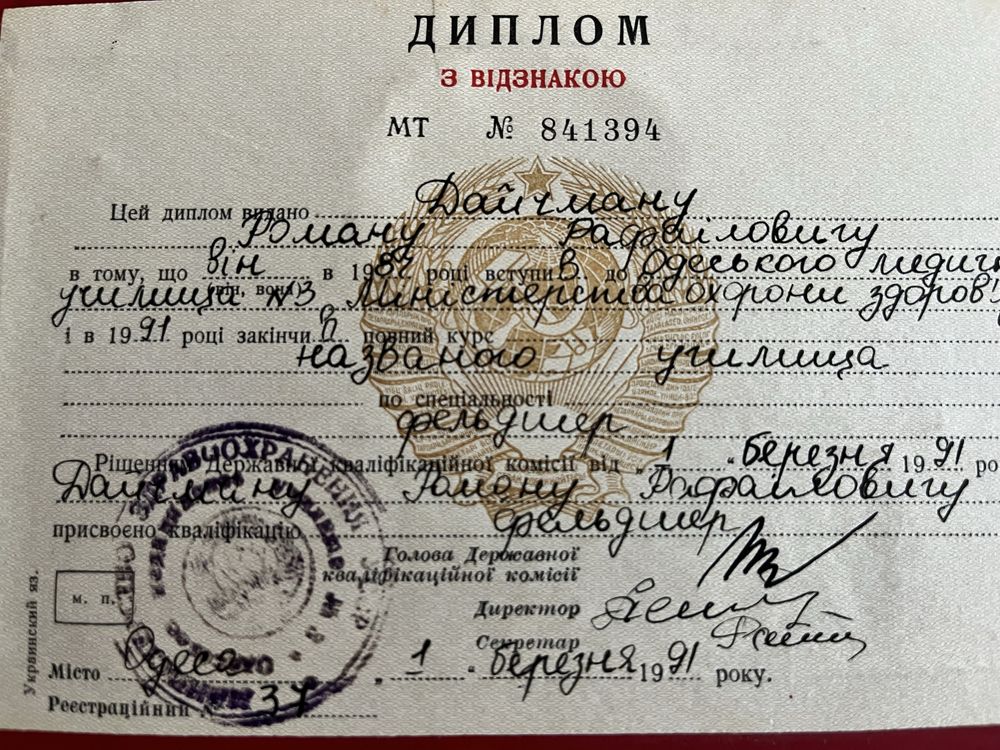 ДИПЛОМ
З ВІДЗНАКОЮ
МТ № 841394
Цей диплом видано Дайчману
Роману Рафаїловичу
в тому, що він в 1987 році вступив до Одеського медич
(він, вона)
училища №3 Министерства охрони здоров'
і в 1991 році закінчив повний курс
названого училища
по спеціальності
фельдшер
Рішенням Державної кваліфікаційної комісії від „1" березня 1991 ро
Дайчману Роману Рафаиловичу
присвоєно кваліфікацію фельдшер
Голова Державної
кваліфікаційної комісії
м. п.
Директор
Секретар
Місто Одеса „1" березня 1991 року.
Реєстраційний № 37
Украинский яз.
ЗДРАВООХРАНЕНИЯ